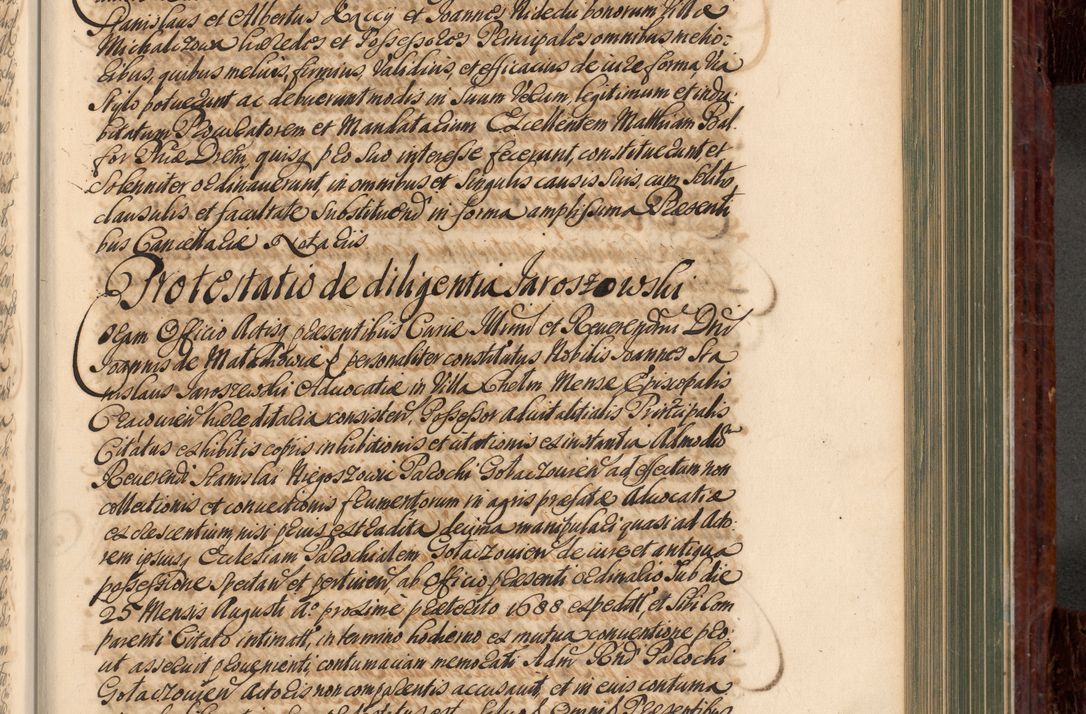 Stanislaus et Albertus Łaccy et Joannes Nidecki bonorum Villæ
Michalczowa hæredes et Possessores Principales omnibus melio-
ribus, quibus melius, firmius, validius, et efficacius de iure forma, via
stylo potuerunt ac debuerunt modis in suum verum, legitimum et indu-
bitatum Procuratorem et Mandatarium Excellentem Mathiam
quisq pro suo interesse fecerunt, constituerunt et
solenniter ordinaverunt, in omnibus et singulis causis suis, cum solitis
clausulis et facultate substituend in forma amplissima Præsenti
bus Cancellariæ Notariis
Protestatio de diligentia Jaroszowski
Coram Officio Actisq præsentibus Curiæ Illmi et Reverendmi Dni
Joannis de Małachowice personaliter constitutus Nobilis Joannes Sta
nislaus Jaroszewski Advocatiæ in Villa Chelm Mensæ Episcopalis
Cracovien hæreditaria consisten, Possessor advitalitialis Principalis
Citatus exhibitis copiis inhibitionis et citationis ex instantia Admodu
Reverendi Stanislai Niegoszowic Parochi Gołaczovien ad effectum non
collectionis et convectionis frumentorum in agris præfatæ Advocatiæ
excrescentium nisi prius extradita decima manipulari quasi ad Acto-
rem ipsiusq Ecclesiam Parochialem Gołaczovien de iure et antiqua
possessione spectan et pertinen, ab Officio præsenti ordinario sub die
25 Mensis Augusti Ao proxime præterito 1688 expedit et sibi Com
parenti Citato intimatt, in termino hodierno ex mutua conventione pro-
ut asseruit provenienti, contumaciam memorati Adm Rnd Parochi
Gołaczovien Actoris non comparentis accusavit, et in eius contuma